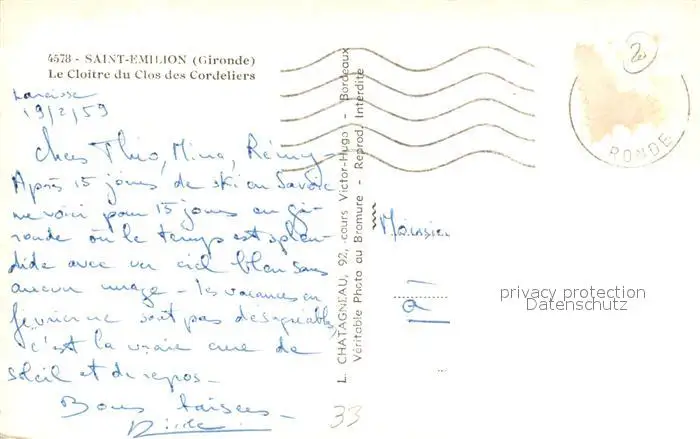 4578 - SAINT-EMILION (Gironde)
Le Cloître du Clos des Cordeliers
19/2/59
Chers Théo, Mina, Rémy -
Après 15 jours de ski en Savoie
me voici pour 15 jours en gi-
ronde où le temps est splen-
dide avec un ciel bleu sans
aucun nuage - les vacances en
février ne sont pas désagréables,
c'est la vraie cure de
soleil et de repos -
Bons baisers -
33
L. CHATAGNEAU, 92, cours Victor-Hugo - Bordeaux
Véritable Photo au Bromure - Reprod. Interdite
Monsieur
à
2
RONDE
privacy protection
Datenschutz